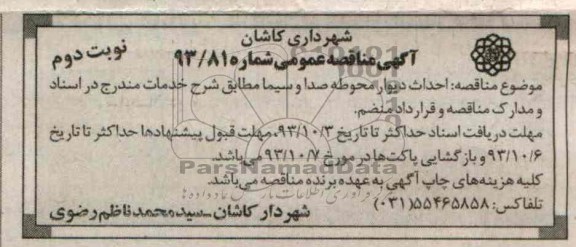 شهرداری کاشان
آگهی مناقصه عمومی شماره ۹۳/۸۱
نوبت دوم
موضوع مناقصه: احداث دیوار محوطه صدا و سیما مطابق شرح خدمات مندرج در اسناد
و مدارک مناقصه و قرارداد منضم.
مهلت دریافت اسناد حداکثر تا تاریخ ۹۳/۱۰/۳، مهلت قبول پیشنهادها حداکثر تا تاریخ
۹۳/۱۰/۶ و بازگشایی پاکت‌ها در مورخ ۹۳/۱۰/۷ می‌باشد.
ParsNamadData
کلیه هزینه‌های چاپ آگهی به عهده برنده مناقصه می‌باشد.
تلفاکس: ۵۵۴۶۵۸۵۸ (۰۳۱)
شهردار کاشان - سید محمد ناظم رضوی